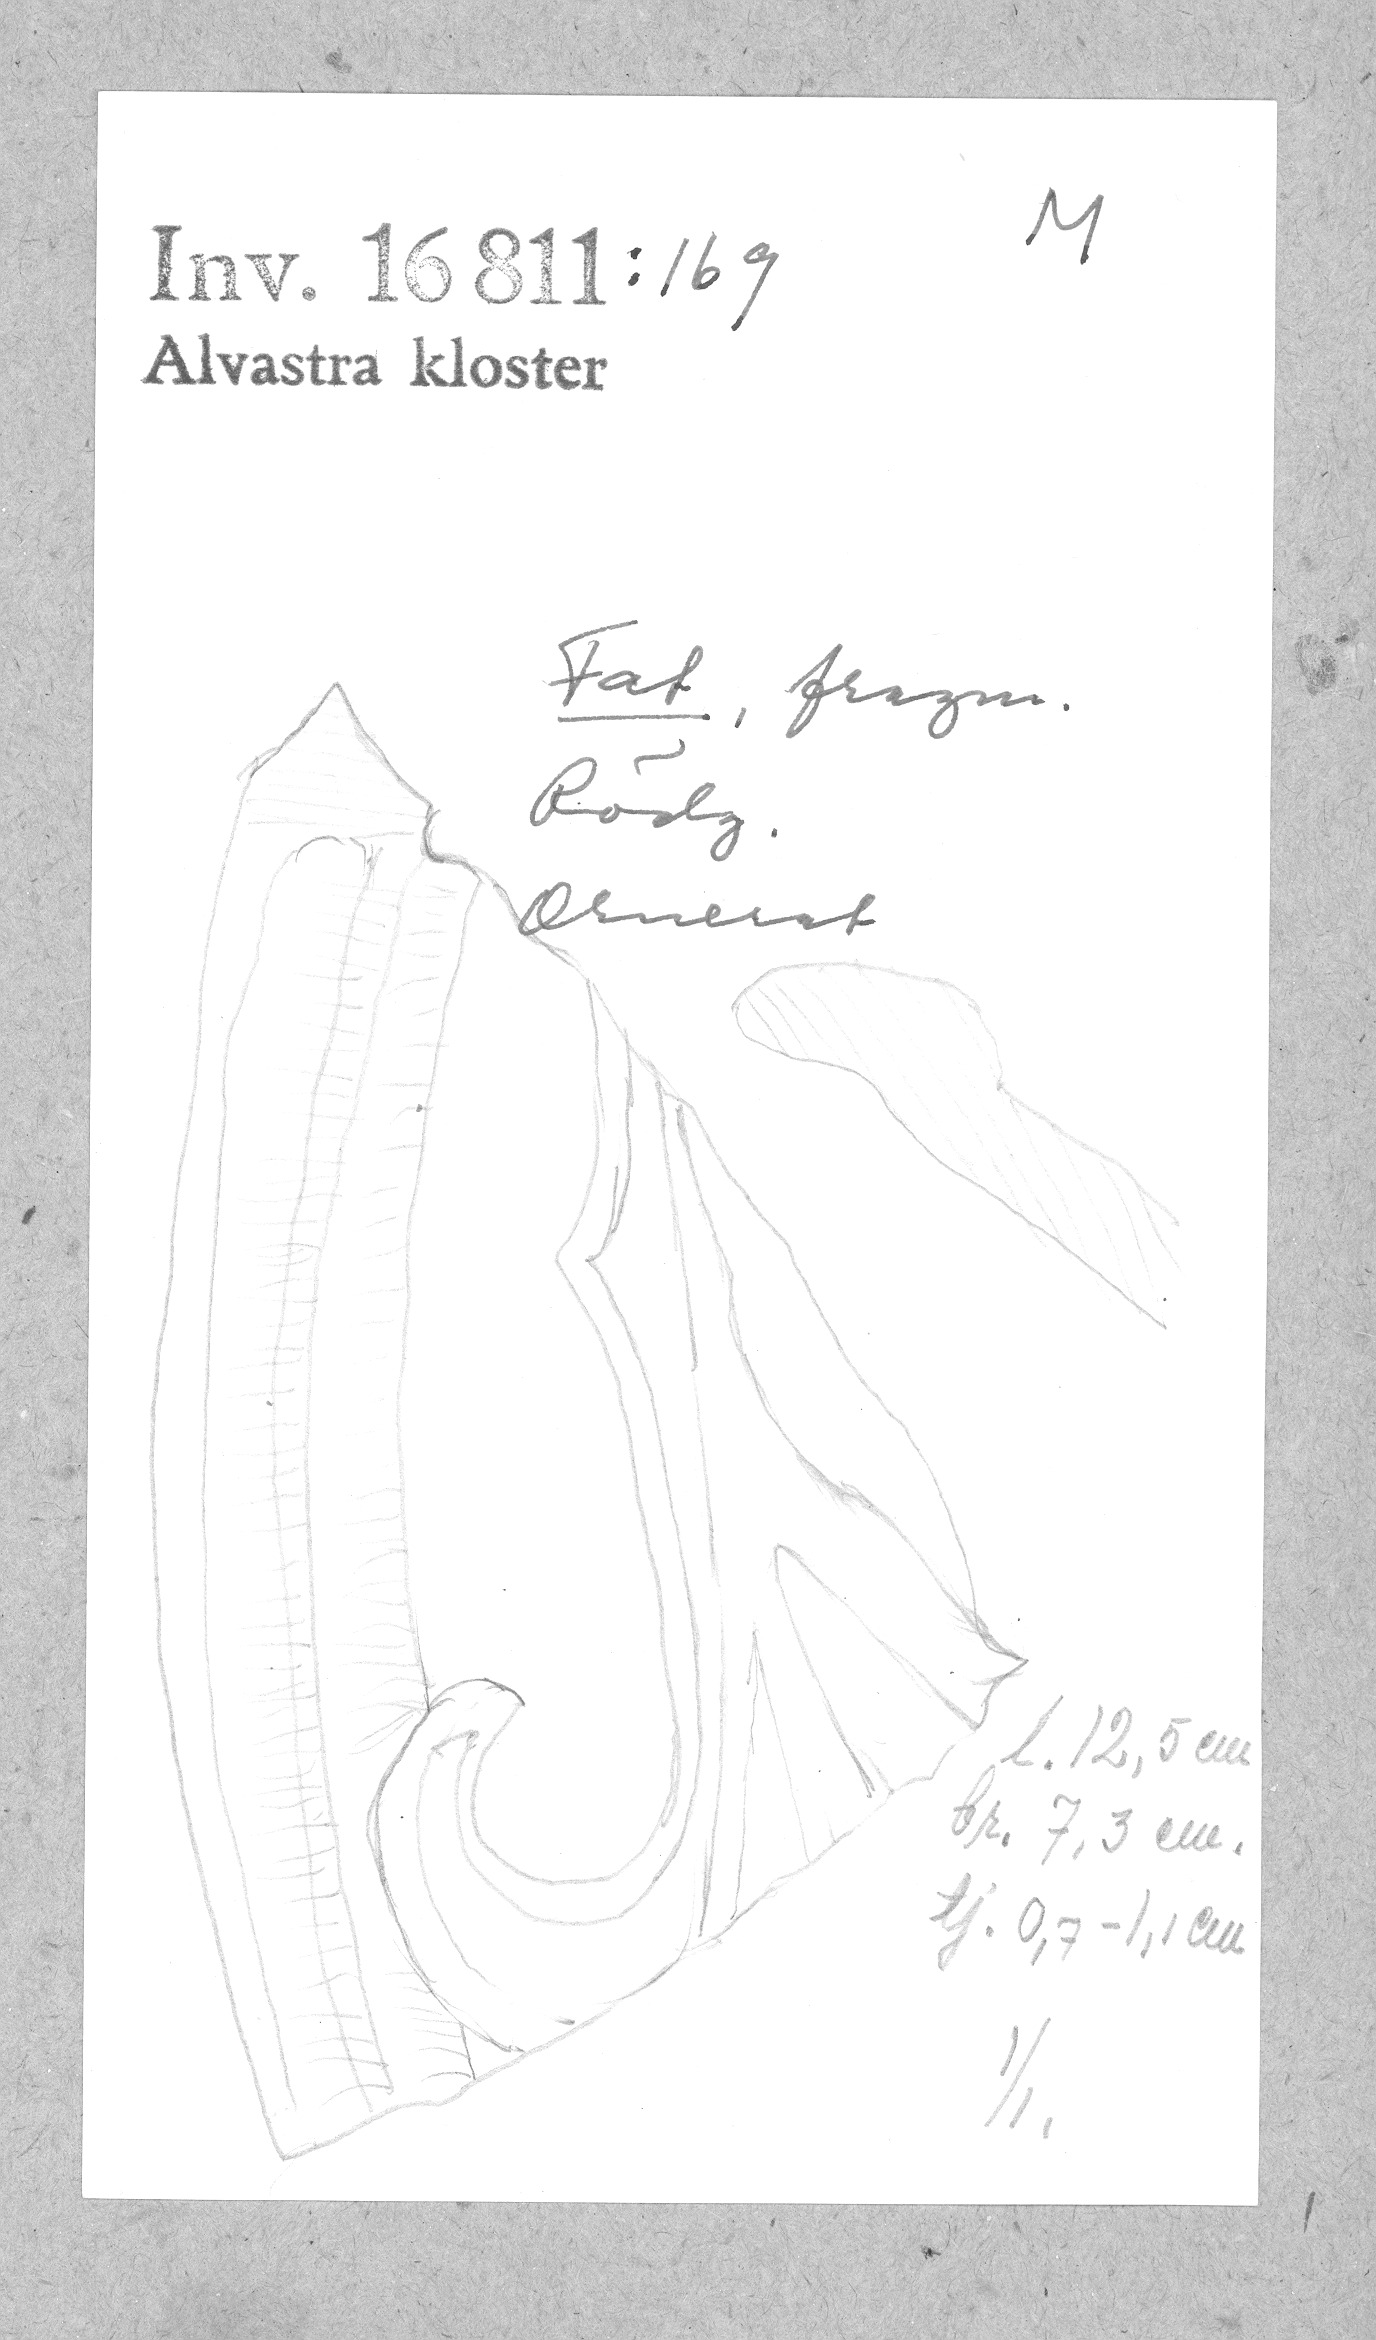 M
Inv. 16811:169
Alvastra kloster
Fat, fragm.
Rödg.
Ornerat
l. 12,5 cm
br. 7,3 cm.
tj. 0,7-1,1 cm
1/1.